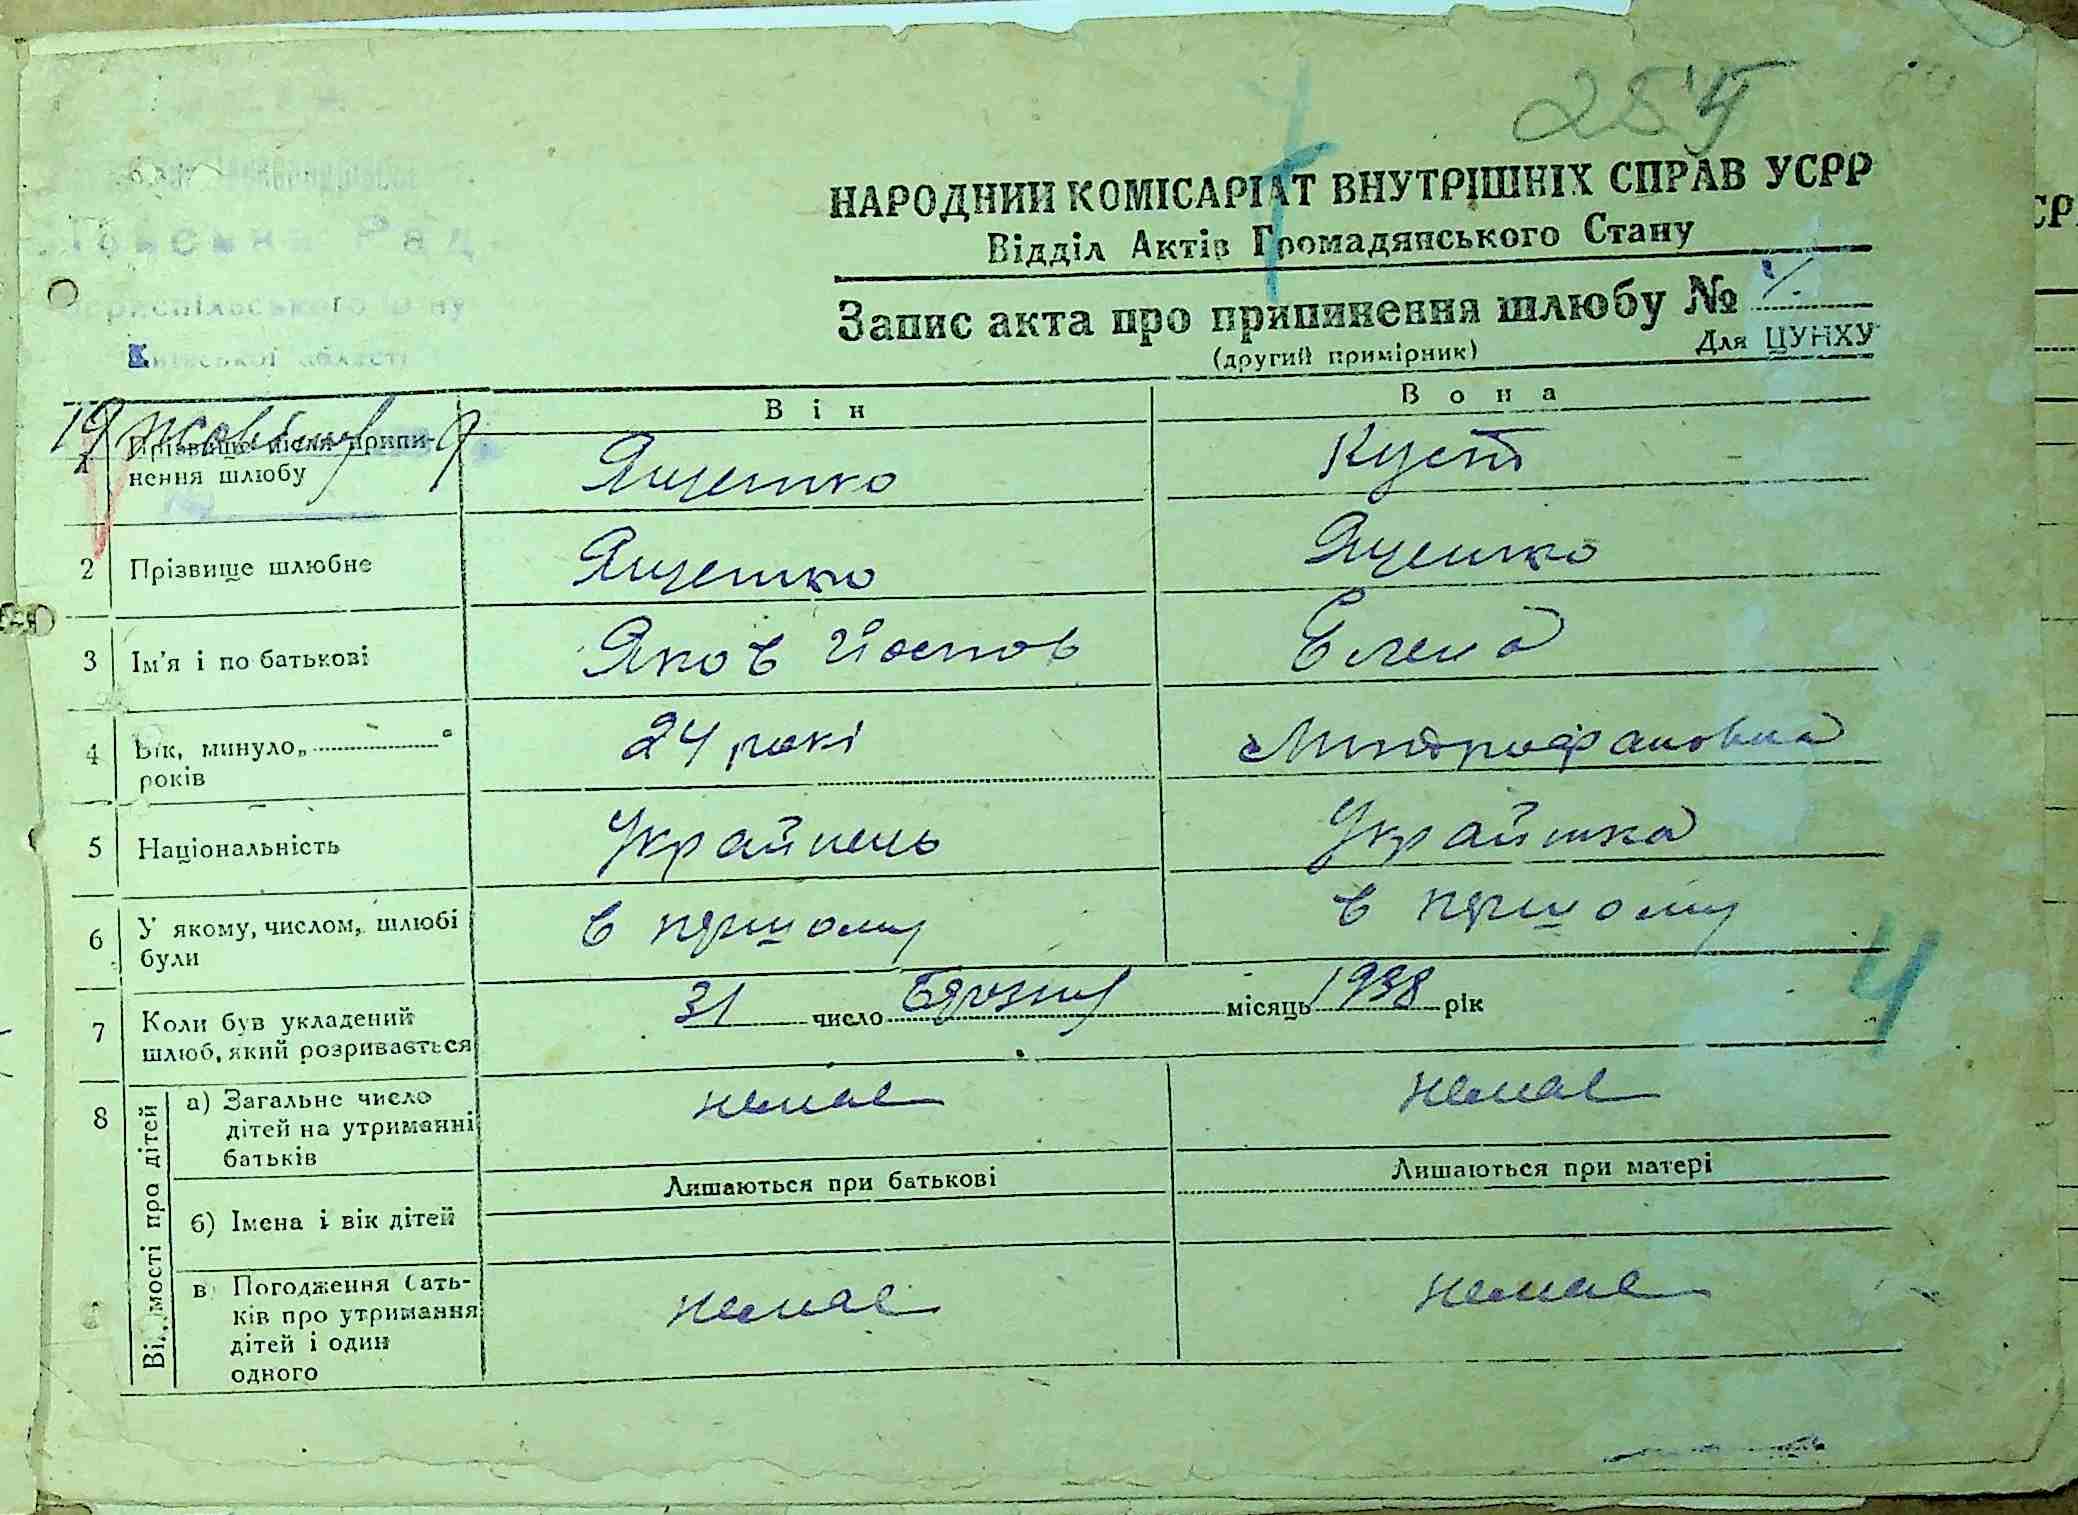 254
НАРОДНИЙ КОМІСАРІАТ ВНУТРІШНІХ СПРАВ УСРР
Відділ Актів Громадянського Стану
Запис акта про припинення шлюбу №
(другий примірник)
Для ЦУНХУ
Рад
Бориспільського р-ну
Київської області
19 жовтня 9
Він
Вона
1 Прізвище після припи-
нення шлюбу
Ященко
Куст
2 Прізвище шлюбне
Ященко
Ященко
3 Ім'я і по батькові
Яков Йосипов
Елена
4 Вік, минуло „ “
років
24 рокі
Митрофановна
5 Національність
Украйнець
Украйнка
6 У якому, числом, шлюбі
були
в першому
в першому
7 Коли був укладений
шлюб, який розривається
31 число Березня місяць 1938 рік
8 Відомості про дітей
а) Загальне число
дітей на утриманні
батьків
немає
немає
Лишаються при батькові
Лишаються при матері
б) Імена і вік дітей
в) Погодження бать-
ків про утримання
дітей і один
одного
немає
немає
4